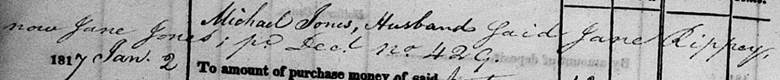 Michael Jones, Husband Said Jane Rippey,
now Jane Jones; pr Decl. no 429.
1817 Jan. 2
To amount of purchase money of said